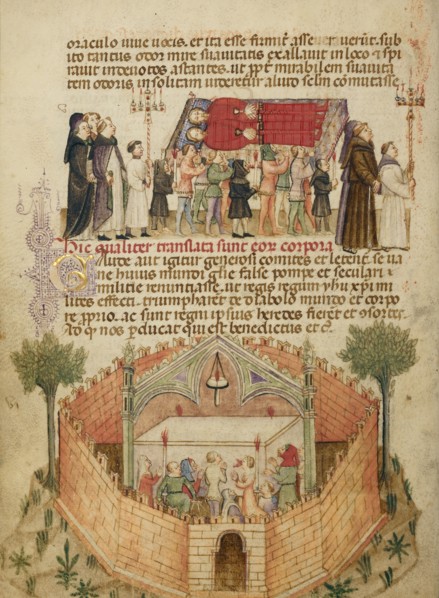 oraculo uiue uocis. et ita esse firmit asseruerūt. sub
ito tantus odor mire suauitatis exallauit in loco et spi
rauit in deuotos astantes. ut ppt mirabilem suauita
tem odoris insolitam uideretur comutasse
Hic qualiter translata sunt eor corpora
Gaude aut igitur generosi comites et letent. se ua
ne huius mundi glie false pompe et seculari
militie renuntiasse. ut regis regum yhu xpi mi
lites effecti. triumpharent de dyabolo mundo et corpo
re pprio. ac sunt regni ipsius heredes fieret et 9sortes.
Ad q nos pducat qui est benedictus et c.